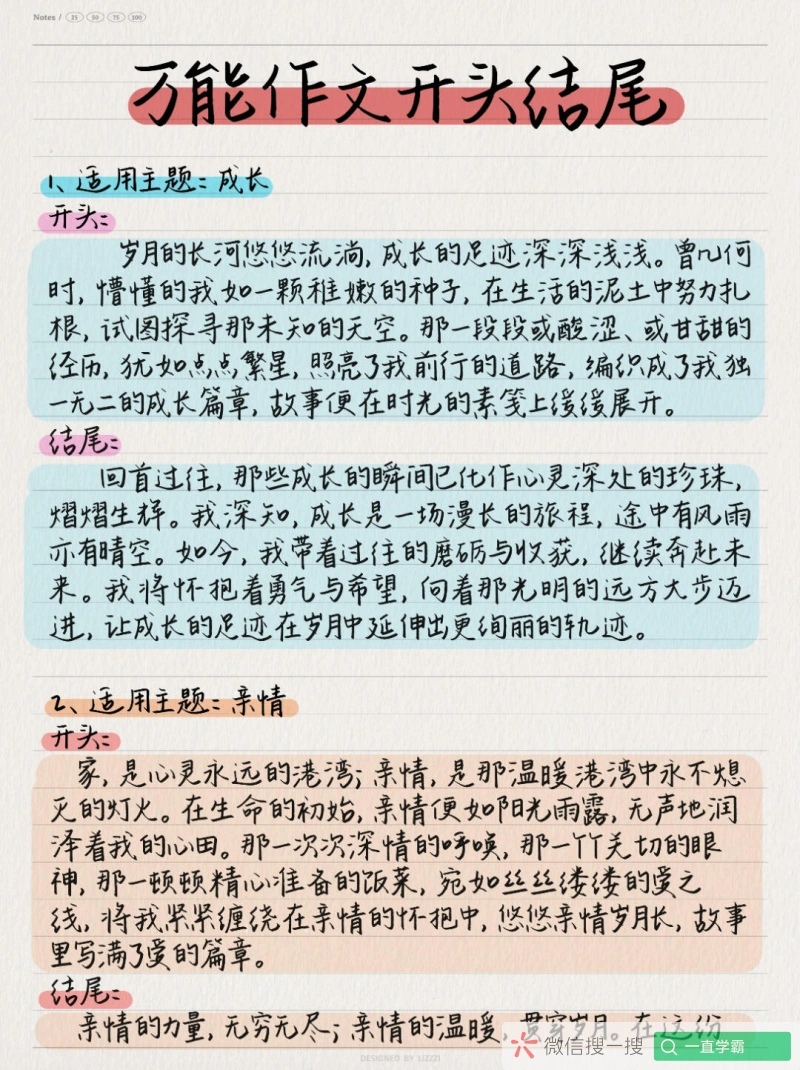 Notes / 25 50 75 100
万能作文开头结尾
1、适用主题：成长
开头：
岁月的长河悠悠流淌，成长的足迹深深浅浅。曾几何
时，懵懂的我如一颗稚嫩的种子，在生活的泥土中努力扎
根，试图探寻那未知的天空。那一段段或酸涩、或甘甜的
经历，犹如点点繁星，照亮了我前行的道路，编织成了我独
一无二的成长篇章，故事便在时光的素笺上缓缓展开。
结尾：
回首过往，那些成长的瞬间已化作心灵深处的珍珠，
熠熠生辉。我深知，成长是一场漫长的旅程，途中有风雨
亦有晴空。如今，我带着过往的磨砺与收获，继续奔赴未
来。我将怀抱着勇气与希望，向着那光明的远方大步迈
进，让成长的足迹在岁月中延伸出更绚丽的轨迹。
2、适用主题：亲情
开头：
家，是心灵永远的港湾；亲情，是那温暖港湾中永不熄
灭的灯火。在生命的初始，亲情便如阳光雨露，无声地润
泽着我的心田。那一次次深情的呼唤，那一个个关切的眼
神，那一顿顿精心准备的饭菜，宛如丝丝缕缕的爱之
线，将我紧紧缠绕在亲情的怀抱中，悠悠亲情岁月长，故事
里写满了爱的篇章。
结尾：
亲情的力量，无穷无尽；亲情的温暖，贯穿岁月。在这份
微信搜一搜 一直学霸
DESIGNED BY LIZZZI